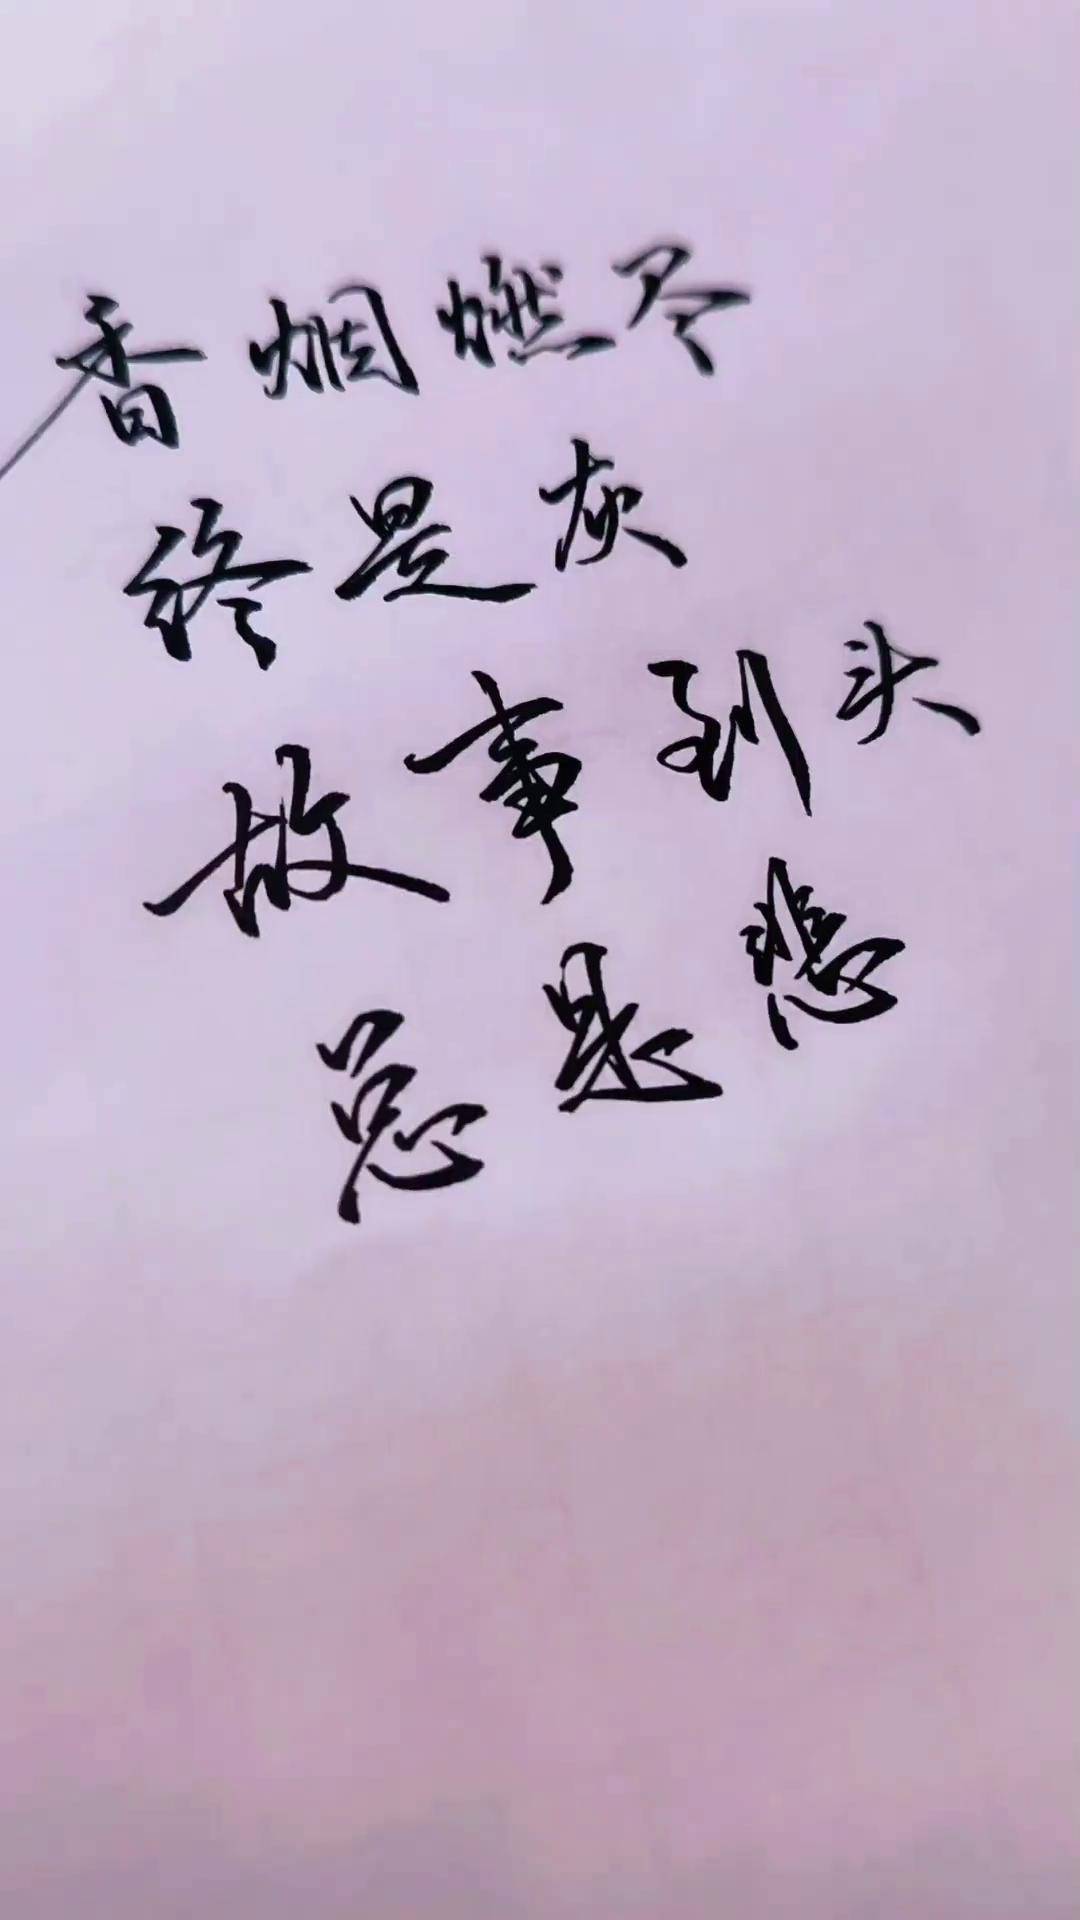 香烟燃尽
终是灰
故事到头
总是悲